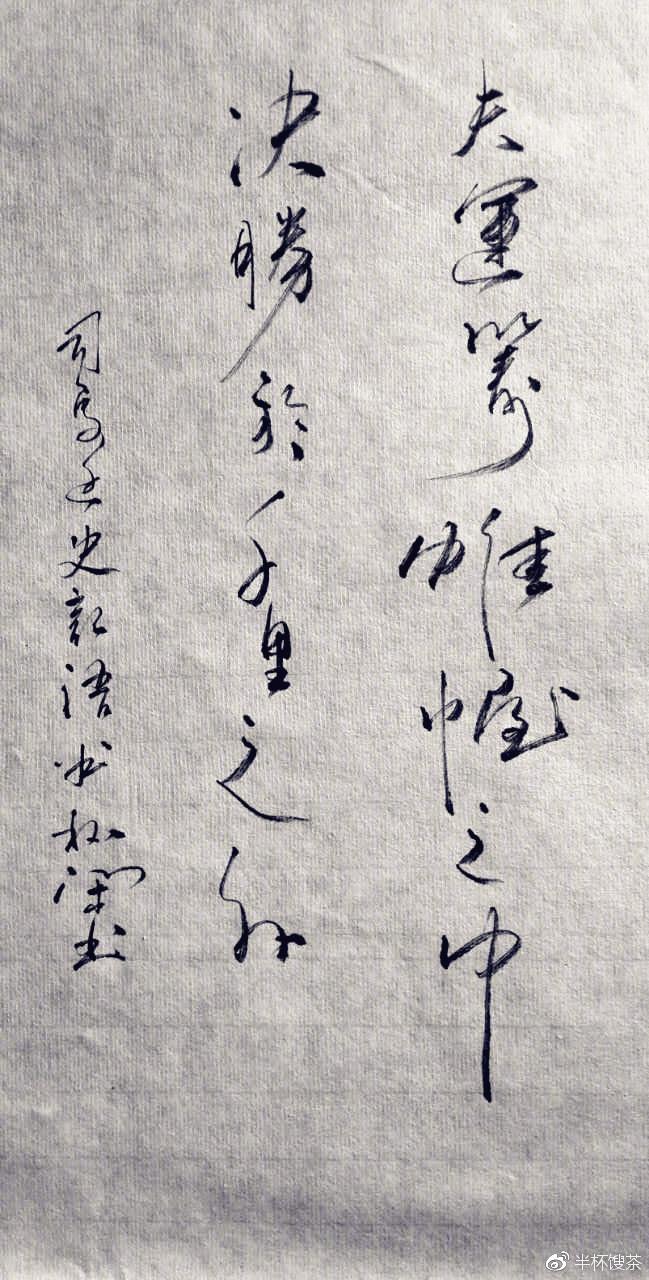 夫運籌帷幄之中
決勝於千里之外
司馬遷史記語
半杯馊茶